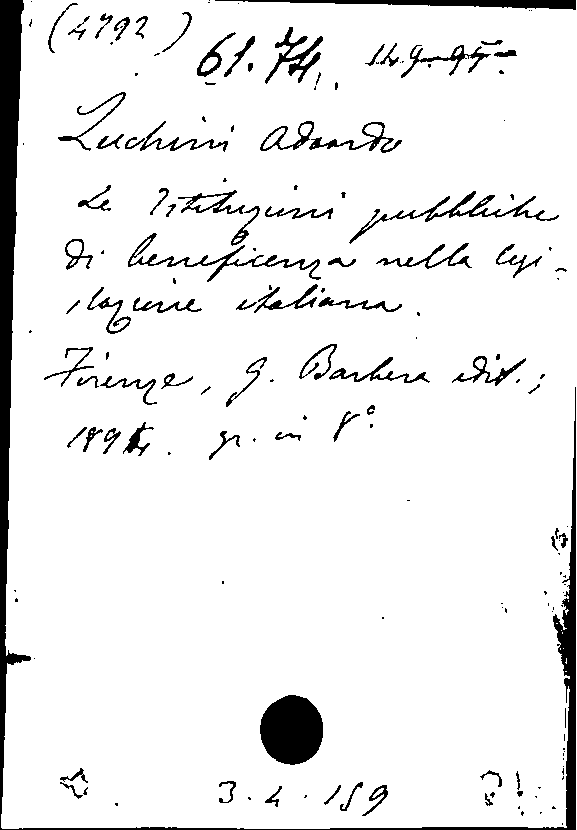 (4792)
61.74.
Luchini Adoardo
Le Istituzioni pubbliche
di beneficenza nella legi-
slazione italiana.
Firenze, G. Barbera edit.;
1894. gr. in 8°.
3.4.159